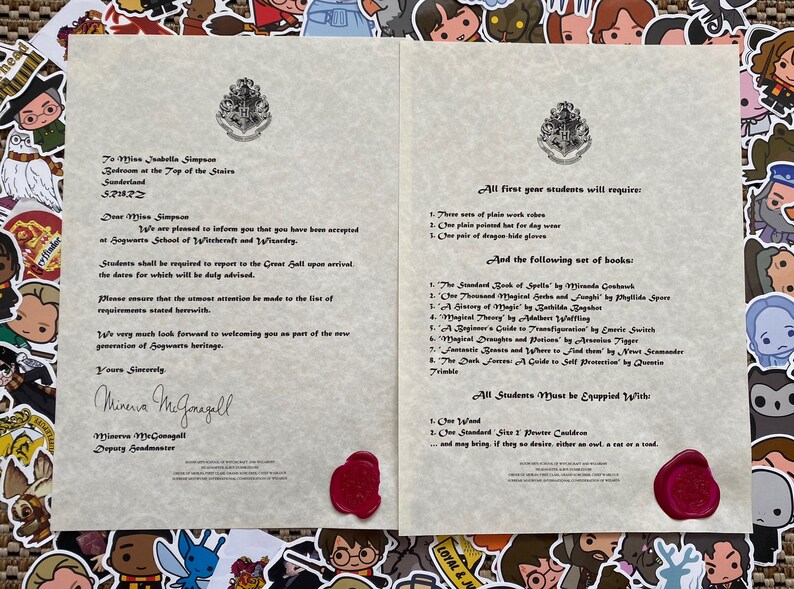 To Miss Isabella Simpson
Bedroom at the Top of the Stairs
Sunderland
SR28RZ
Dear Miss Simpson
We are pleased to inform you that you have been accepted
at Hogwarts School of Witchcraft and Wizardry.
Students shall be required to report to the Great Hall upon arrival,
the dates for which will be duly advised.
Please ensure that the utmost attention be made to the list of
requirements stated herewith.
We very much look forward to welcoming you as part of the new
generation of Hogwarts heritage.
Yours Sincerely,
Minerva McGonagall
Minerva McGonagall
Deputy Headmaster
HOGWARTS SCHOOL OF WITCHCRAFT AND WIZARDRY
HEADMASTER: ALBUS DUMBLEDORE
ORDER OF MERLIN, FIRST CLASS, GRAND SORCERER, CHIEF WARLOCK
SUPREME MUGWUMP, INTERNATIONAL CONFEDERATION OF WIZARDS
H
All first year students will require:
1. Three sets of plain work robes
2. One plain pointed hat for day wear
3. One pair of dragon-hide gloves
And the following set of books:
1. 'The Standard Book of Spells' by Miranda Goshawk
2. 'One Thousand Magical Herbs and Funghi' by Phyllida Spore
3. 'A History of Magic' by Bathilda Bagshot
4. 'Magical Theory' by Adalbert Waffling
5. 'A Beginner's Guide to Transfiguration' by Emeric Switch
6. 'Magical Draughts and Potions' by Arsenius Tigger
7. 'Fantastic Beasts and Where to Find them' by Newt Scamander
8. 'The Dark Forces: A Guide to Self Protection' by Quentin
Trimble
All Students Must be Equppied With:
1. One Wand
2. One Standard 'Size 2' Pewter Cauldron
... and may bring, if they so desire, either an owl, a cat or a toad.
HOGWARTS SCHOOL OF WITCHCRAFT AND WIZARDRY
HEADMASTER: ALBUS DUMBLEDORE
ORDER OF MERLIN, FIRST CLASS, GRAND SORCERER, CHIEF WARLOCK
SUPREME MUGWUMP, INTERNATIONAL CONFEDERATION OF WIZARDS
H
Gryffindor
LOYAL &